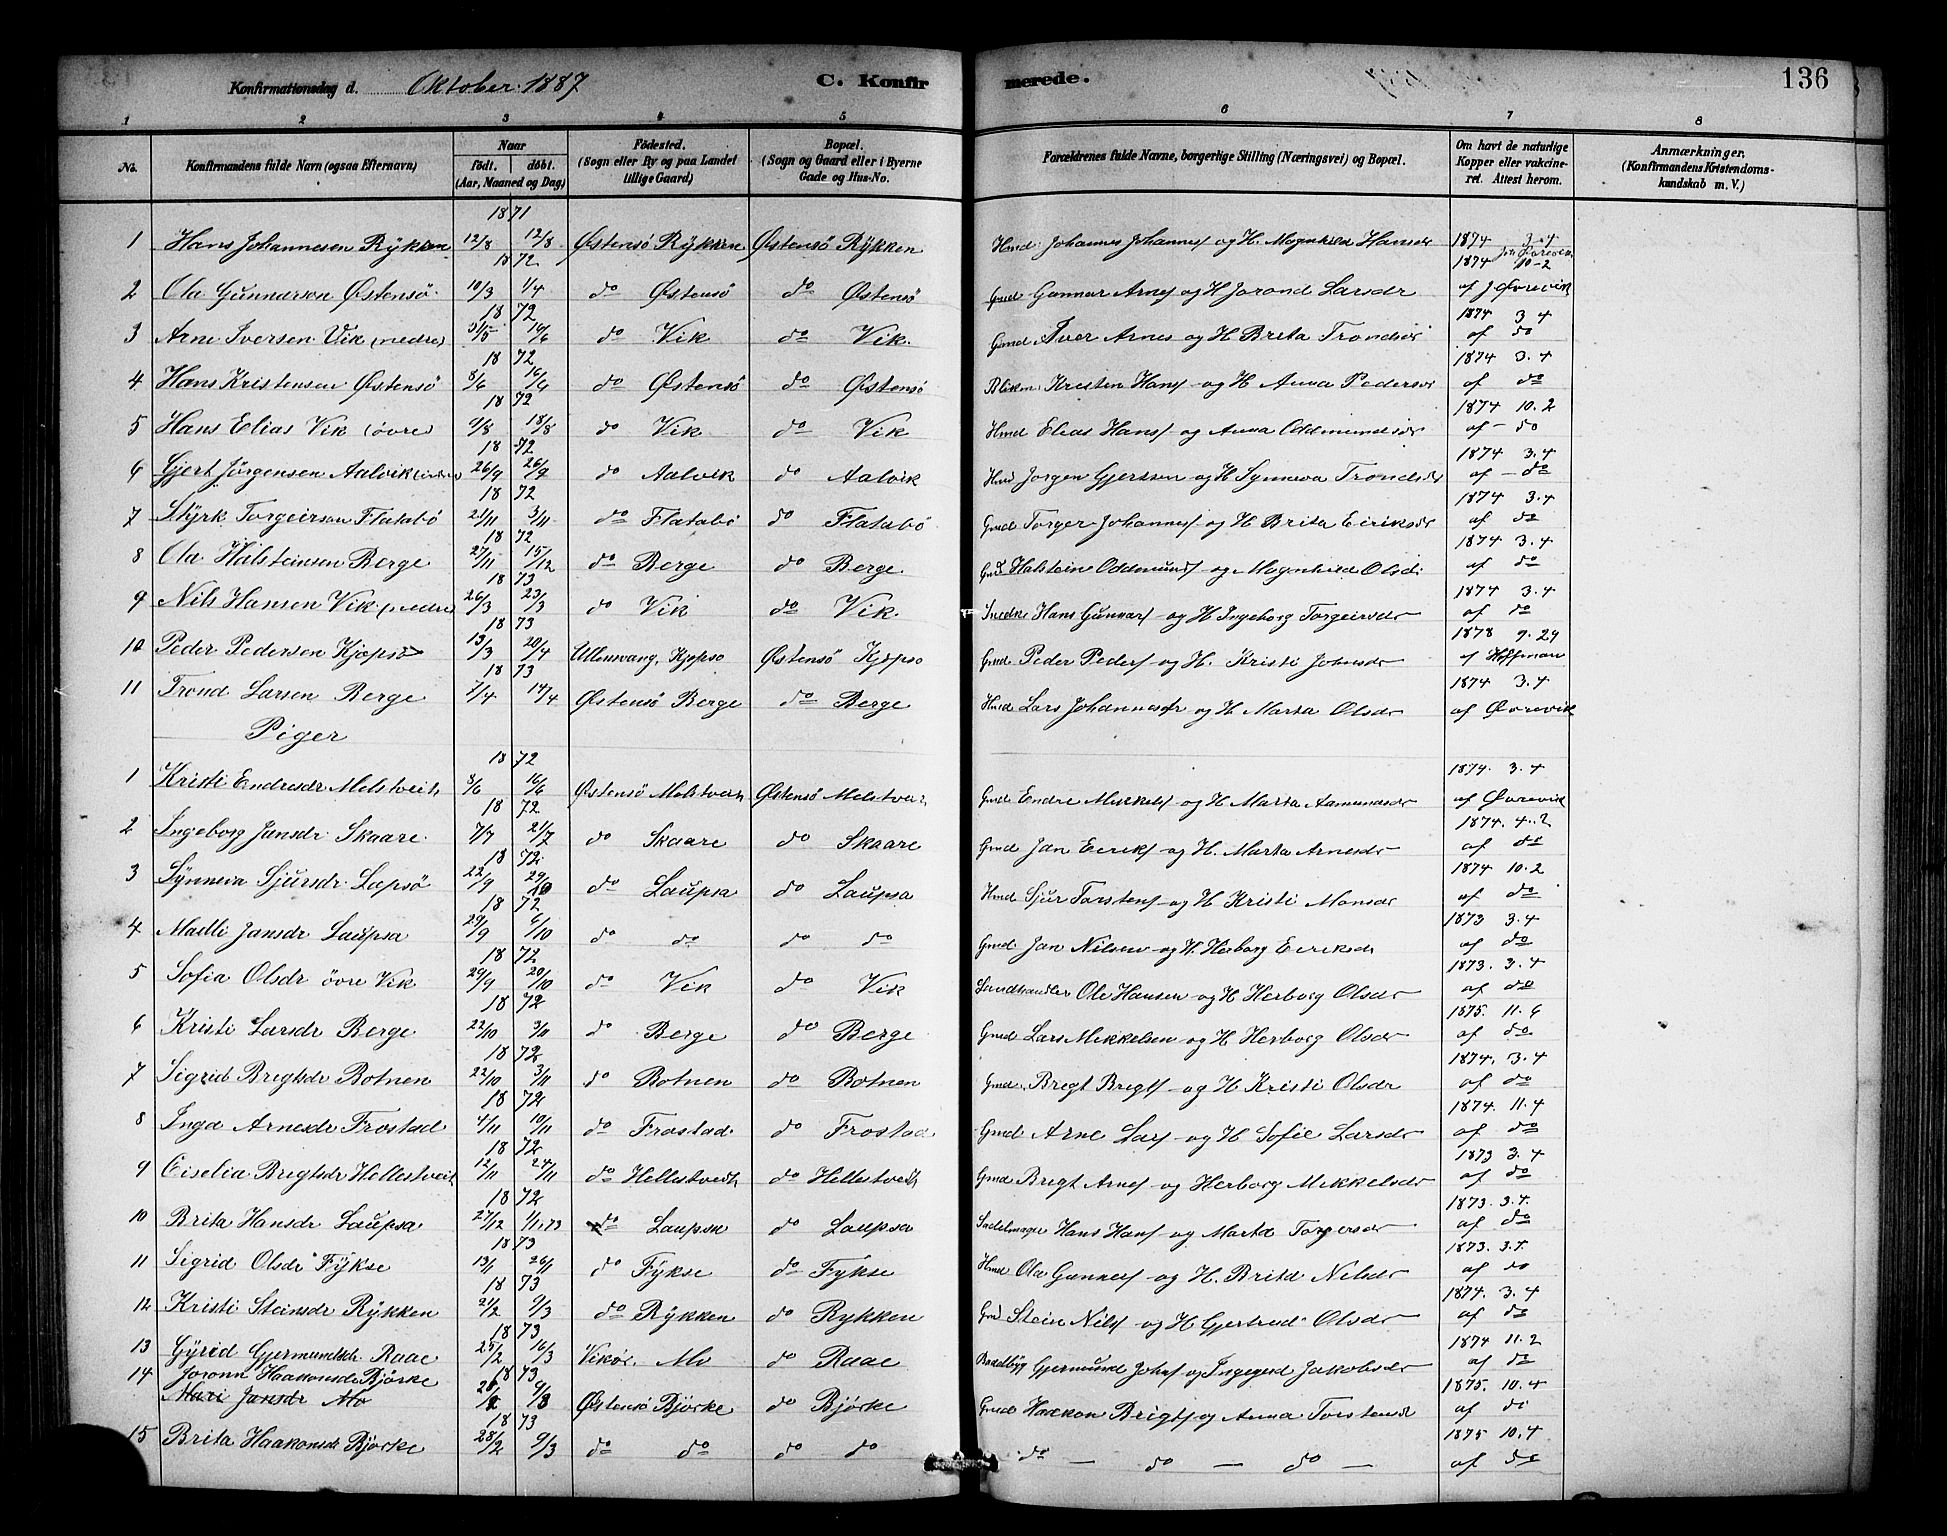 Konfirmationsdag d. Oktober 1887 C. Konfir merede. 136
1 2 3 4 5 6 7 8
No. Konfirmandens fulde Navn (ogsaa Efternavn) Naar födt. döbt. (Aar, Maaned og Dag) Födested. (Sogn eller By og paa Landet tillige Gaard) Bopæl. (Sogn og Gaard eller i Byerne Gade og Hus-No. Forældrenes fulde Navne, borgerlige Stilling (Næringsvei) og Bopæl. Om havt de naturlige Kopper eller vakcineret. Attest herom. Anmærkninger. (Konfirmandens Kristendomskundskab m. V.)
1871
1 Hans Johannesen Rÿkken 12/8 12/8 Østensö Rÿkken Østensö Rÿkken Hmd Johannes Johannes og H. Magnhild Hansdr 1874 3-4
1872 1874 10-2
2 Ola Gunnarson Østensö 10/3 1/4 do Østensö do Østensö Gmd Gunnar Arnes og H Jorond Larsdr af J Øvrevik
1872 1874 3 4
3 Arne Iversen Vik (nedre) 31/5 16/6 do Vik do Vik. Gmd Iver Arnes og H Brita Trondsdr af do
1872 1874 3.4
4 Hans Kristensen Østensö 8/6 16/6 do Østensö do Østensö Kristen Hans og H Anna Pedersdr af do
1872 1874 10.2
5 Hans Elias Vik (övre) 9/8 18/8 do Vik do Vik Hmd Elias Hans og Anna Oddmundsdr af - do
1872 1874 3.4
6 Gjert Jörgensen Aalvik 26/9 26/9 do Aalvik do Aalvik Hmd Jorgen Gjertsen og H Synneva Trondsdr af - do
1872 1874 3.4
7 Stÿrk Torgeirson Flatabö 21/11 3/11 do Flatabö do Flatabö Gmd Torger Johannes og H Brita Eiriksdr af do
1872 1874 3.4
8 Ola Halsteinsen Berge 27/11 15/12 do Berge do Berge. Gmd Halstein Oddmunds og Magnhild Olsd. af do
1873 1874 3.4
9 Nils Hansen Vik (nedre) 26/3 23/3 do Vik do Vik. Snedk Hans Gunnars og H Ingeborg Torgeirsdr af do
1873 1878 9.29
10 Peder Pedersen Kjepsö 13/3 20/4 Ullensvang, Kjepso Østensö Kjepso Gmd Peder Peders og H. Kristi Johnsdr af Hoffman
1873 1874 3.4
11 Trond Larsen Berge 7/4 14/4 Østensö Berge do Berge Hmd Lars Johannes og H Marta Olsdr af Øvrevik
Piger
1872 1874. 3.4
1 Kristi Endresdr Melstveit 8/6 16/6 Østensö Melstveit Østensö Melstveit Gmd Endre Mikkels og H Marta Aamundsdr af Øvrevik
1872 1874. 4.2
2 Ingeborg Jansdr Skaare. 7/7 21/7 do Skaare do Skaare Gmd Jan Eeriks og H. Marta Arnesdr af do
1872. 1874 10.2
3 Sÿnneva Sjursdr Lapsö 22/9 29/9 do Laupsa do Laupsa Hmd Sjur Torstens og H Kristi Monsdr af do
1872 1873 3.4
4 Madli Jansdr Laupsa 29/9 6/10 do do do do Gmd Jan Nilsen og H. Herborg Eeriksdr af do
1872 1873. 3.4
5 Sofia Olsdr övre Vik 29/9 20/10 do Vik do Vik Landhandler Ole Hansen og H Herborg Olsdr af do
1872 1875. 11.6
6 Kristi Larsdr Berge 22/10 3/11 do Berge do Berge Gmd Lars Mikkelsen og H Herborg Olsdr af do
1872 1874. 3.4
7 Sigrid Brigtsdr Botnen 22/10 3/11 do Botnen do Botnen Gmd. Brigt Brigts og H Kristi Olsdr af do
1872 1874. 11.4
8 Inga Arnesdr Frostad 4/11 10/11 do Frostad. do Frostad. Gmd Arne Lars og H Sofie Larsdr af do
1872 1873 3.4
9 Ciselia Brigtsdr Hellestveit 12/11 24/11 do Hellestvedt do Hellestvedt Gmd Brigt Arnes og Herborg Mikkelsdr af do
1872 1873. 3.4.
10 Brita Hansdr Laupsa 27/12 1/1.73 do Laupsa do Laupsa Sadelmager Hans Hans og Marta Torgersdr af do
1873 1873. 3.4.
11 Sigrid Olsdr Fÿkse 13/1 26/1 do Fÿkse do Fykse Hmd Ola Gunners og H. Brita Nelsdr af do
1873 1874. 3.4
12 Kristi Steinsdr Rÿkken 21/2 9/3 do Rÿkken do Rykken Gmd Stein Nils og H Gjertrud Olsdr af do
1873 1874 11.2
13 Gÿrid Gjermundsdr. Raae 25/2 16/3 Vikör. Mo do Raae Gjermund Johs og Ingegerd Jakobsdr af do
1873 1875. 10.4
14 Joronn Haakonsdr Bjørke
Mari Jansdr Mo 28/2 9/3 Østensö Bjørke do Bjørke Gmd Haakon Brigts og Anna Torstensdr af do
1873 1875 10.4
15 Brita Haakonsdr Bjørke 28/2 9/3 do do do do do - do - do - af do